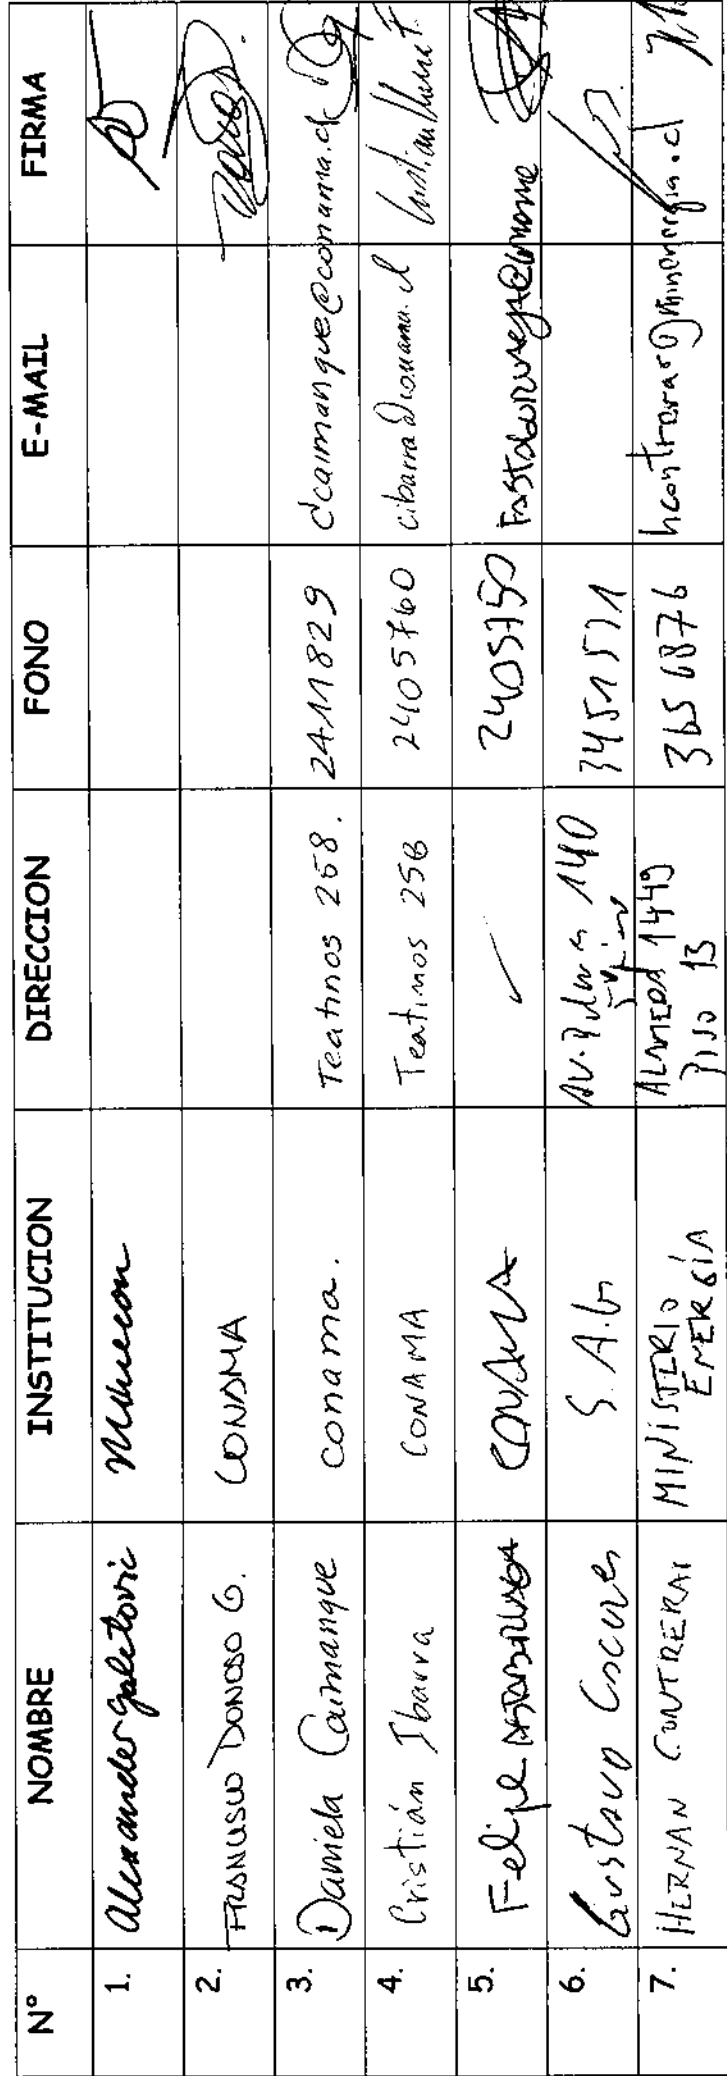 N° NOMBRE INSTITUCION DIRECCION FONO E-MAIL FIRMA
1. Alexander Galetovic
2. FRANCISCO DONOSO G. CONAMA
3. Daniela Caimanque conama. Teatinos 258. 2411829 dcaimanque@conama.cl
4. Cristián Ibarra CONAMA Teatinos 258 2405760 cibarra@conama.cl
5. Felipe CONAMA 2405750
6. Gustavo S.A.G. AV. 140 3451571
7. HERNAN CONTRERAS MINISTERIO ENERGÍA ALAMEDA 1449 PISO 13 365 6876 hcontreras@minenergia.cl